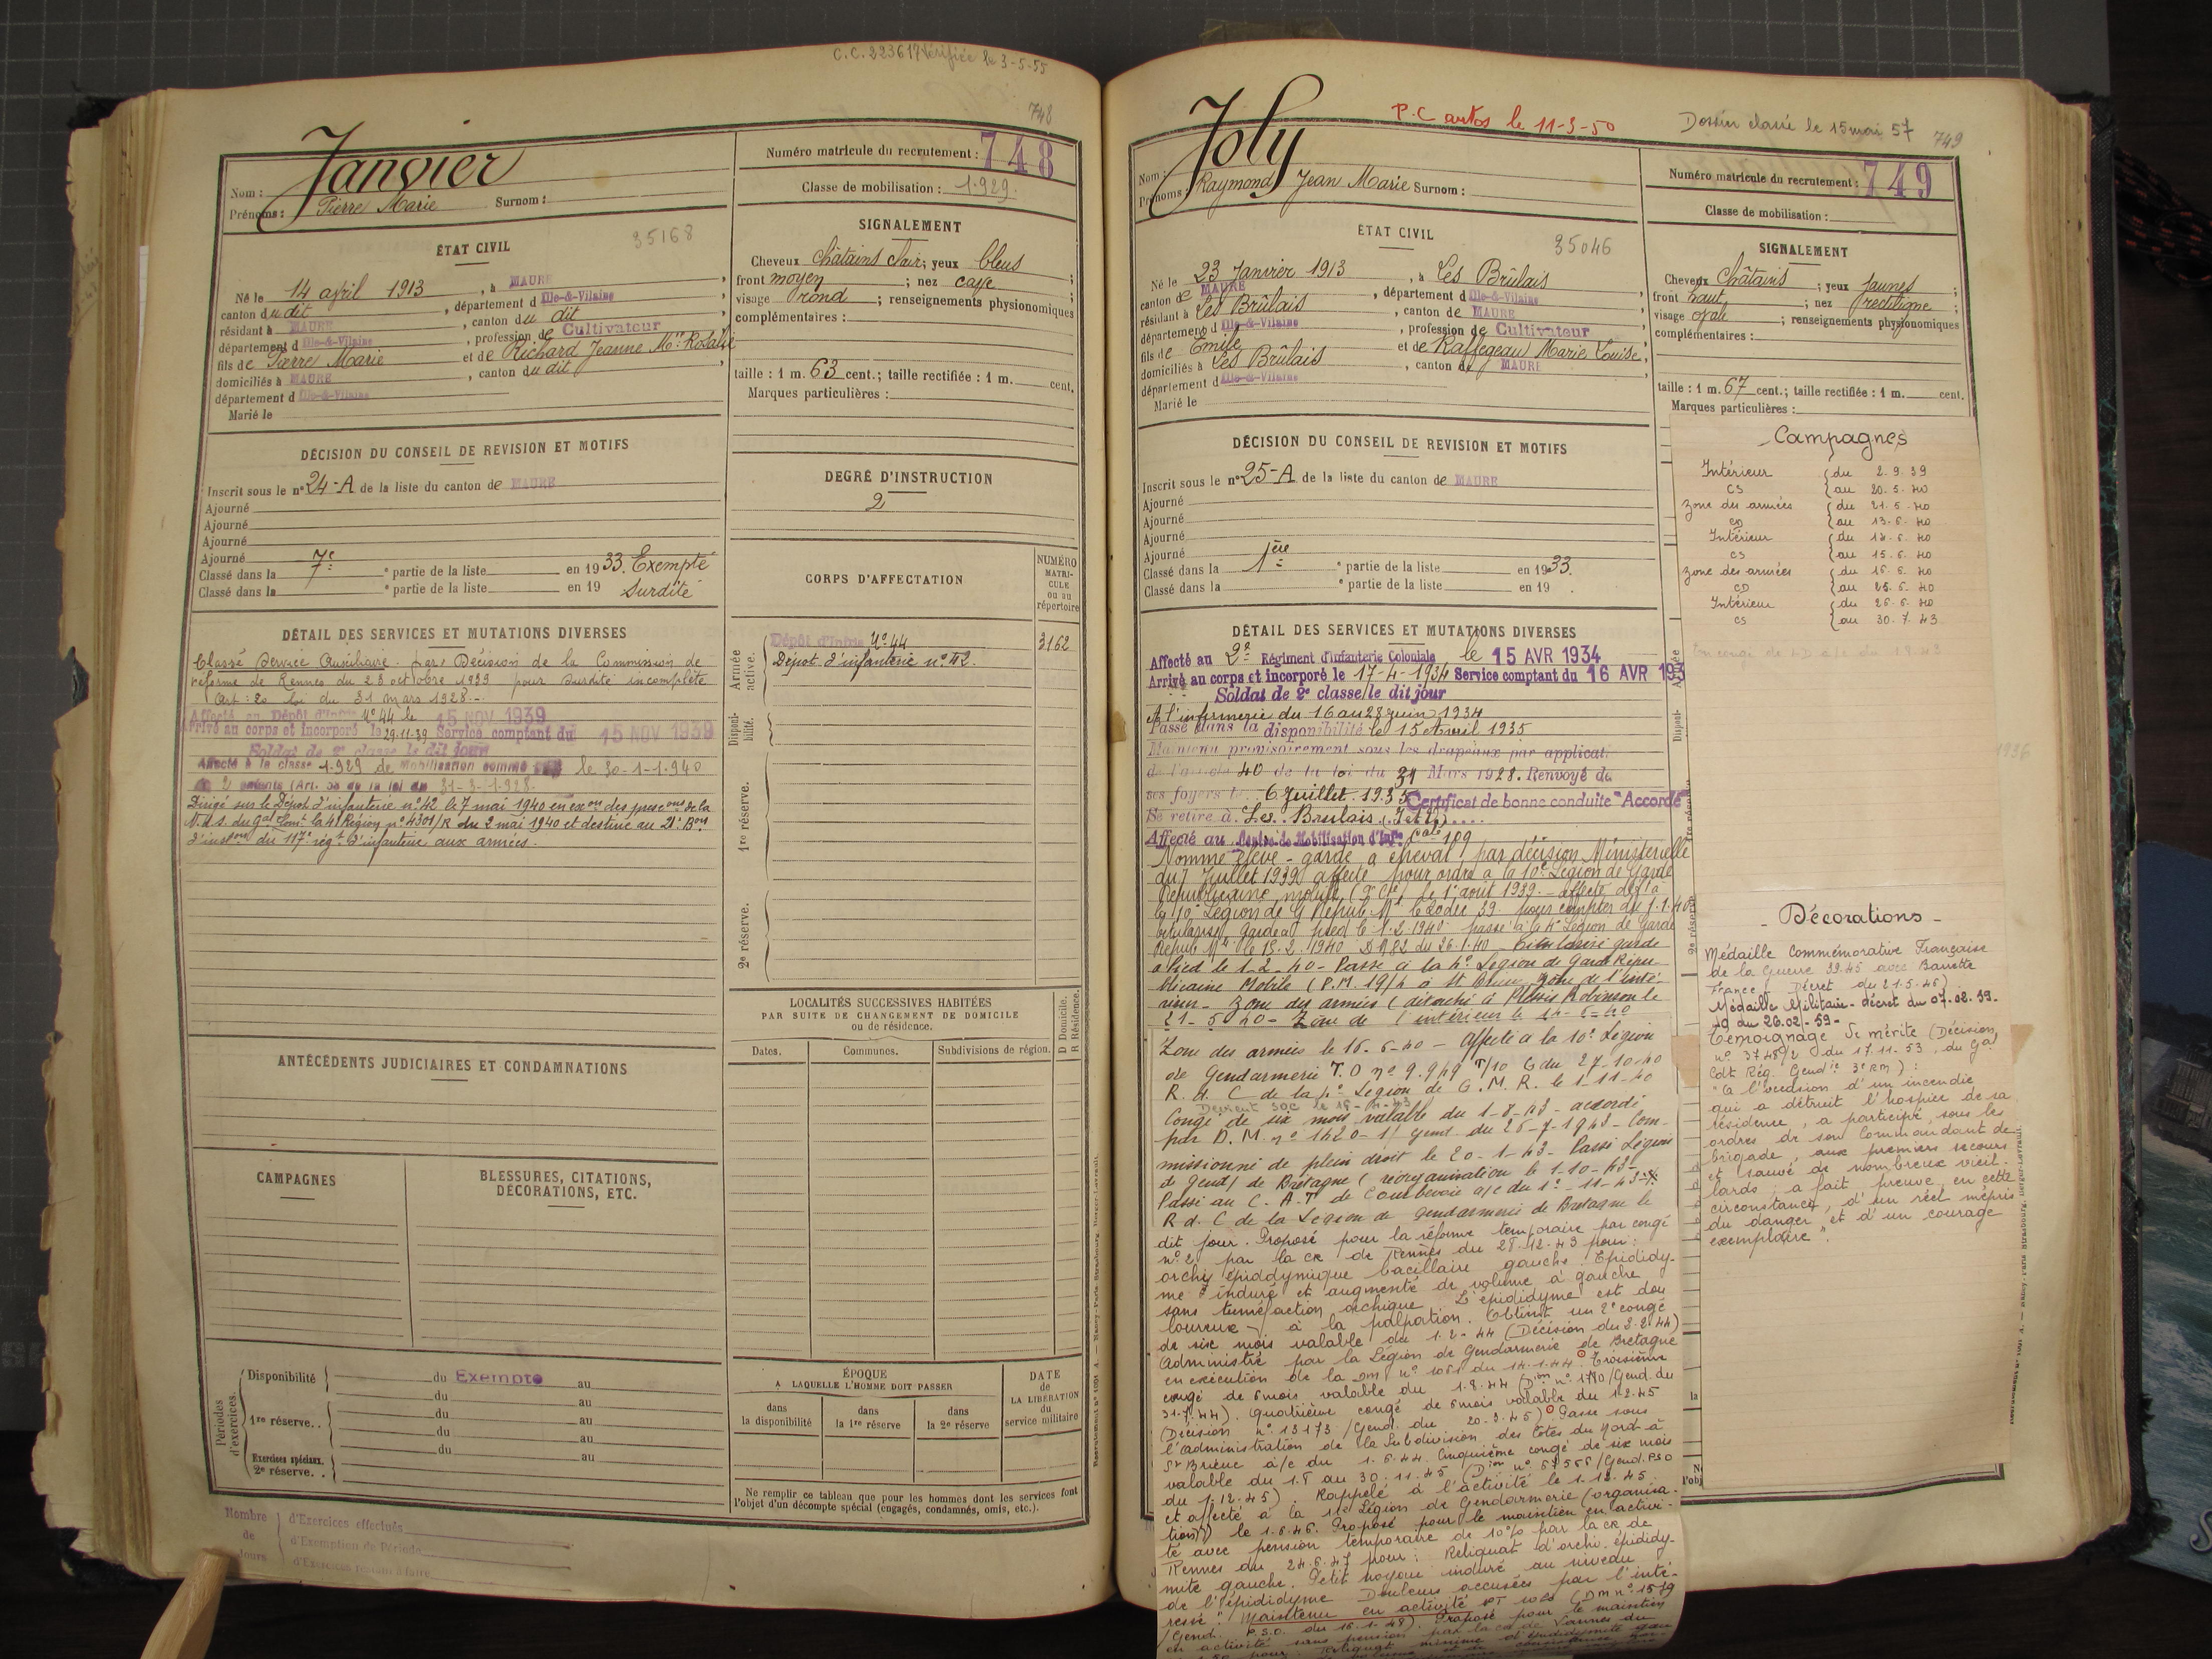 C.C. 223617 Vérifiée le 3-5-55
748
Janvier
Nom :
Prénoms : Pierre Marie Surnom :
Numéro matricule du recrutement : 748
Classe de mobilisation : 1.929.
ÉTAT CIVIL
35168
Né le 14 april 1913, à MAURE,
canton du dit, département d Ille-&-Vilaine,
résidant à MAURE, canton du dit,
département d Ille-&-Vilaine, profession de Cultivateur
fils de Pierre Marie et de Richard Jeanne Mie Rosalie
domiciliés à MAURE, canton du dit,
département d Ille-&-Vilaine
Marié le
SIGNALEMENT
Cheveux châtains clair; yeux bleus;
front moyen; nez cave;
visage rond; renseignements physionomiques
complémentaires :
taille : 1 m. 63 cent.; taille rectifiée : 1 m. cent.
Marques particulières :
DÉCISION DU CONSEIL DE REVISION ET MOTIFS
Inscrit sous le n° 24-A de la liste du canton de MAURE
Ajourné
Ajourné
Ajourné
Ajourné
Classé dans la 7e partie de la liste en 1933. Exempté
Classé dans la e partie de la liste en 19 Surdité
DEGRÉ D'INSTRUCTION
2
CORPS D'AFFECTATION
NUMÉRO MATRICULE ou au répertoire
DÉTAIL DES SERVICES ET MUTATIONS DIVERSES
Classé Service Auxiliaire par Décision de la Commission de
réforme de Rennes du 23 octobre 1939 pour surdité incomplète
(Art : 20 loi du 31 mars 1928.-
Affecté au Dépôt d'Infrie N° 44 le 15 NOV 1939
Arrivé au corps et incorporé le 29-11-39 Service comptant du 15 NOV 1939
Soldat de 2e classe le dit jour
Affecté à la classe 1.929 de Mobilisation comme le 30-1-1.940
de 2 enfants (Art. 58 de la loi du 31-3-1.928.
Dirigé sur le Dépôt d'infanterie n° 42 le 7 mai 1940 en exon des presons de la
N.d.s. du Gal Comt la 4e Région n° 4301/R du 2 mai 1940 et destiné au 21e Bon
d'instron du 117e régt d'infanterie aux armées.
Armée active.
Dépôt d'Infrie N° 44 3162
Dépôt d'infanterie n° 42.
Disponibilité.
1re réserve.
2e réserve.
LOCALITÉS SUCCESSIVES HABITÉES
PAR SUITE DE CHANGEMENT DE DOMICILE
ou de résidence.
D Domicile.
R Résidence.
Dates. Communes. Subdivisions de région.
ANTÉCÉDENTS JUDICIAIRES ET CONDAMNATIONS
CAMPAGNES
BLESSURES, CITATIONS,
DÉCORATIONS, ETC.
Périodes d'exercices.
Disponibilité du Exempté au
du au
1re réserve.. du au
du au
Exercices spéciaux. du au
2e réserve..
ÉPOQUE
A LAQUELLE L'HOMME DOIT PASSER
dans la disponibilité
dans la 1re réserve
dans la 2e réserve
DATE de LA LIBÉRATION du service militaire
Ne remplir ce tableau que pour les hommes dont les services font
l'objet d'un décompte spécial (engagés, condamnés, omis, etc.).
Nombre de Jours
d'Exercices effectués
d'Exemption de Période
d'Exercices restant à faire
P.C autos le 11-3-50
Dossier classé le 15 mai 57
749
Joly
Nom :
Prénoms : Raymond Jean Marie Surnom :
Numéro matricule du recrutement : 749
Classe de mobilisation :
ÉTAT CIVIL
35046
Né le 23 Janvier 1913, à Les Brûlais
canton de MAURE, département d Ille-&-Vilaine,
résidant à Les Brûlais, canton de MAURE,
département d Ille-&-Vilaine, profession de Cultivateur
fils de Emile et de Raffegeau Marie Louise,
domiciliés à Les Brûlais, canton de MAURE,
département d Ille-&-Vilaine
Marié le
SIGNALEMENT
Cheveux châtains; yeux jaunes;
front haut; nez rectiligne;
visage ovale; renseignements physionomiques
complémentaires :
taille : 1 m. 67 cent.; taille rectifiée : 1 m. cent.
Marques particulières :
DÉCISION DU CONSEIL DE REVISION ET MOTIFS
Inscrit sous le n° 25-A de la liste du canton de MAURE
Ajourné
Ajourné
Ajourné
Ajourné
Classé dans la 1ère partie de la liste en 1933.
Classé dans la e partie de la liste en 19 .
Campagnes
Intérieur (du 2.9.39
CS (au 20.5.40
Zone des armées (du 21.5.40
CD (au 13.6.40
Intérieur (du 14.6.40
CS (au 15.6.40
Zone des armées (du 16.6.40
CD (au 25.6.40
Intérieur (du 26.6.40
CS (au 30.7.43
DÉTAIL DES SERVICES ET MUTATIONS DIVERSES
Affecté au 2e Régiment d'Infanterie Coloniale le 15 AVR 1934
Arrivé au corps et incorporé le 17-4-1934 Service comptant du 16 AVR 193
Soldat de 2e classe le dit jour
A l'infirmerie du 16 au 28 juin 1934
Passé dans la disponibilité le 15 Avril 1935
Maintenu provisoirement sous les drapeaux par applicat.
de l'article 40 de la loi du 31 Mars 1928. Renvoyé de
ses foyers le 6 Juillet 1935 Certificat de bonne conduite "Accordé"
Se retire à Les Brulais (I et V)
Affecté au Centre de Mobilisation d'Infie Cole 109
Nommé élève-garde à cheval par décision Ministérielle
du 7 Juillet 1939 affecté pour ordre à la 10e Légion de Garde
Républicaine mobile le 1er août 1939 - affecté à
la 10e Légion de G Répub. Mle le 20 déc 39 pour compter du 1.1.40
titularisé Garde à pied le 1.2.1940 passé à la 4e Légion de Garde
Répub Mle le 13.2.1940 du 26.1.40 - titularisé garde
à Pied le 1-2-40 - Passé à la 4e Légion de Garde Répu-
blicaine Mobile (P.M. 19/4 à St Brieuc, Zone de l'inté-
rieur - Zone des armées (détaché à Plessis Robinson le
21-5-40 - Zone de l'intérieur le 14-6-40
Zone des armées le 16-6-40 - Affecté à la 10e Légion
de Gendarmerie T.O n° 9.949 T/10 G du 27-10-40
R. d. C de la 4e Légion de G.M.R. le 1-11-40
Congé de six mois valable du 1-8-43 - accordé
par D.M. n° 1420-1/ gend. du 26-7-1943 - Com-
missionné de plein droit le 20-1-43 - Passé Légion
de Gend/ de Bretagne (réorganisation le 1-10-43 -
Passé au C.A.T de Courbevoie a/c du 1er-11-43 -
R d. C de la Légion de gendarmerie de Bretagne le
dit jour. Proposé pour la réforme temporaire par congé
n° 2 par la CR de Rennes du 28.12.43 pour :
orchi épididymique bacillaire gauche. Epididy-
me induré et augmenté de volume à gauche
sans tuméfaction orchique. L'épididyme est dou
loureux à la palpation. Obtient un 2e congé
de six mois valable du 1.2.44 (Décision du 3.2.44)
Administré par la Légion de Gendarmerie de Bretagne
en exécution de la DM n° 1061 du 14.1.44. Troisième
congé de 6 mois valable du 1.8.44 (Don n° 1780/Gend. du
31-7-44). Quatrième congé de 6 mois valable du 1.2.45
(Décision n° 13173/Gend. du 20.3.45) Passe sous
l'administration de la Subdivision des Côtes du Nord à
St Brieuc a/c du 1.6.44. Cinquième congé de six mois
valable du 1.8 au 30.11.45 (Don n° 67566/Gend. PSO
du 1.12.45). Rappelé à l'activité le 1.12.45
et affecté à la 11e Légion de Gendarmerie (organisa-
tion) le 1.6.46. Proposé pour le maintien en activi-
té avec pension temporaire de 10% par la CR de
Rennes du 24.6.47 pour : Reliquat d'orchi. épididy-
mite gauche. Petit noyau induré au niveau
de l'épididyme. Douleurs accusées par l'inté-
ressé. Maintenu en activité PT 10% (DM n° 1519
/Gend. P.S.O. du 16.1.48). Proposé pour le maintien
en activité sans pension par la CR de Vannes du
Décorations -
Médaille Commémorative Française
de la Guerre 39.45 avec Barrette
France (Décret du 21.5.46)
Médaille Militaire - décret du 07.02.59.
JO du 26.02-59-
Témoignage de mérite (Décision
n° 3748/2 du 17.11.53, du Gal
Cdt Rég. Gendie 3e RM) :
"A l'occasion d'un incendie
qui a détruit l'hospice de sa
résidence, a participé, sous les
ordres de son Commandant de
brigade, aux premiers secours
et sauvé de nombreux vieil-
lards, a fait preuve en cette
circonstance, d'un réel mépris
du danger et d'un courage
exemplaire".